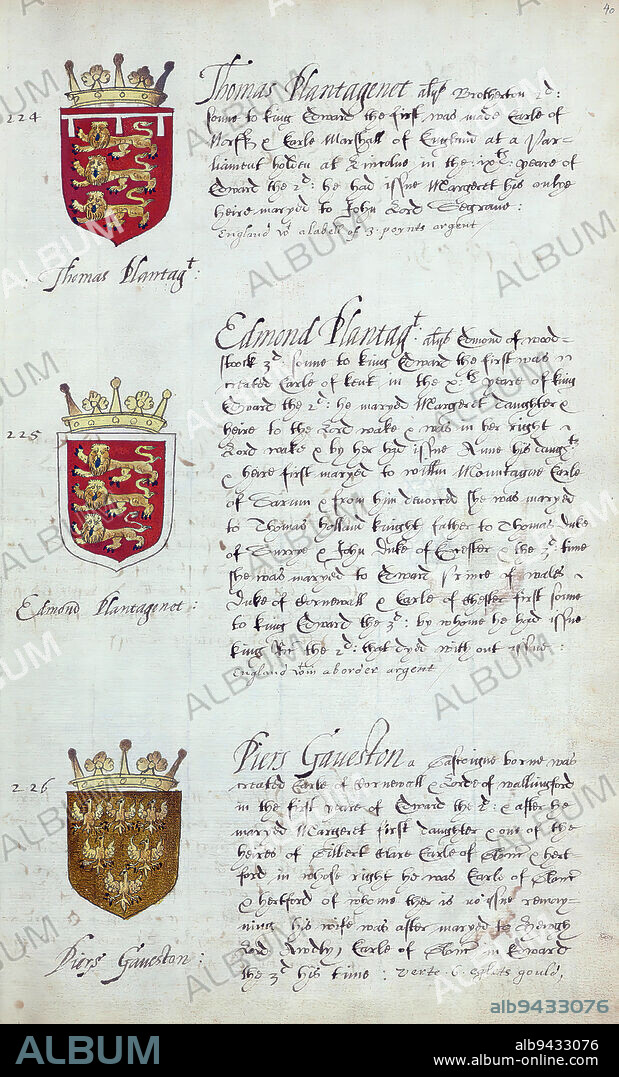 40
224
Thomas Plantagenet als Brotherton 2d:
sonne to king Edward the first, was made Earle of
Norff: & Earle Marshall of England at a Par-
liament holden at Lincolne in the: ixth: yeare of
Edward the 2d: he had issue Margeret his onlye
heire maryed to John Lord Segrave:
England wt a label of 3 poynts argent
Thomas Plantagt:
Edmond Plantagt: als Edmond of wood-
stock 3d sonne to king Edward the first was
created Earle of kent in the xth yeare of king
Edward the 2d: he maryed Margeret daughter &
heire to the Lord wake & was in her right
Lord wake & by her had issue Anne his daugtr
& heire first maryed to willm Mountague Earle
of Sarum & from him devorced she was maryed
to Thomas Holland knight father to Thomas duke
of Surrye & John duke of Excester & the 3d: time
she was maryed to Edward Prince of wales
duke of Cornewall & Earle of Chester first sonne
to king Edward the 3d: by whome he had issue
king Ric the 2d: that dyed with out issue:
England wtin a border argent
225
Edmond Plantagenet:
226
Piers Gaveston a Gascoigne borne was
created Earle of Cornewall & Lorde of wallingford
in the first yeare of Edward the 2d: & after he
maryed Margeret first daughter & one of the
heires of Gilbert Clare Earle of Glouc & hert-
ford in whose right he was Earle of Glouc
& hertford of whome ther is no issue remay-
ning his wife was after maryed to Hewgh
Lord Awdley Earle of Glouc in Edward
the 3d his time: Verte 6 eglets gould,
Piers Gaveston:
ALBUM
alb9433076
ALBUM
alb9433076
www.album-online.com